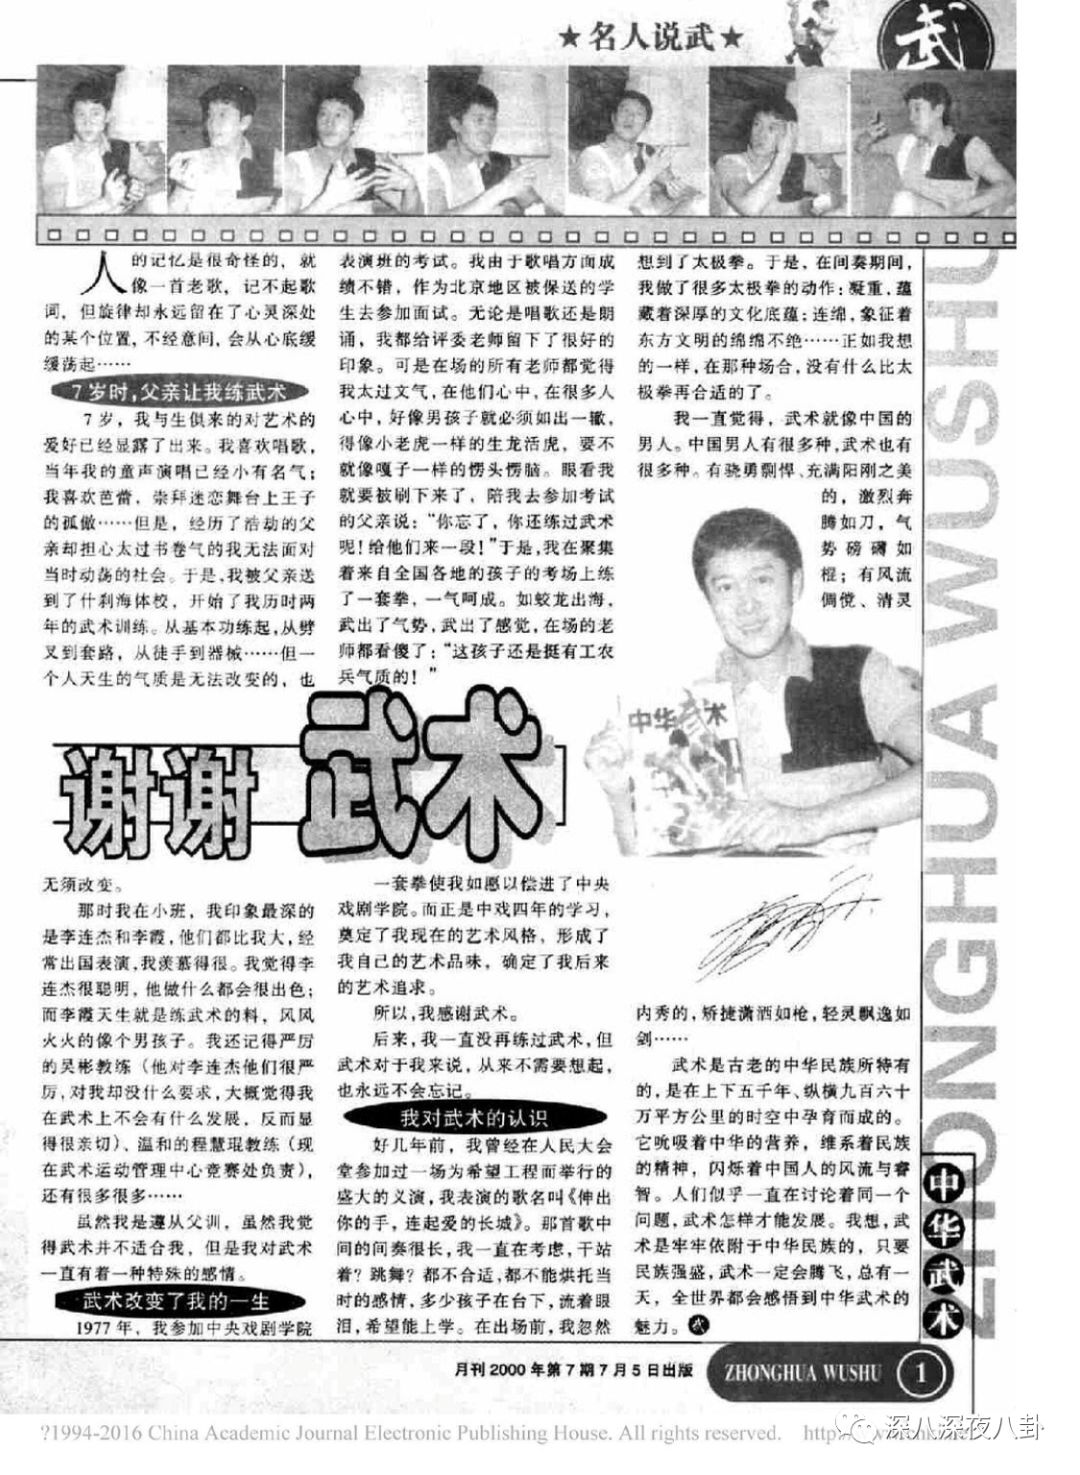 ★名人说武★
武
人的记忆是很奇怪的，就
像一首老歌，记不起歌
词，但旋律却永远留在了心灵深处
的某个位置，不经意间，会从心底缓
缓荡起……
7岁时，父亲让我练武术
7岁，我与生俱来的对艺术的
爱好已经显露了出来。我喜欢唱歌，
当年我的童声演唱已经小有名气；
我喜欢芭蕾，崇拜迷恋舞台上王子
的孤傲……但是，经历了浩劫的父
亲却担心太过书卷气的我无法面对
当时动荡的社会。于是，我被父亲送
到了什刹海体校，开始了我历时两
年的武术训练。从基本功练起，从劈
叉到套路，从徒手到器械……但一
个人天生的气质是无法改变的，也
表演班的考试。我由于歌唱方面成
绩不错，作为北京地区被保送的学
生去参加面试。无论是唱歌还是朗
诵，我都给评委老师留下了很好的
印象。可是在场的所有老师都觉得
我太过文气，在他们心中，在很多人
心中，好像男孩子就必须如出一辙，
得像小老虎一样的生龙活虎，要不
就像嘎子一样的愣头愣脑。眼看我
就要被刷下来了，陪我去参加考试
的父亲说：“你忘了，你还练过武术
呢！给他们来一段！”于是，我在聚集
着来自全国各地的孩子的考场上练
了一套拳，一气呵成。如蛟龙出海，
武出了气势，武出了感觉，在场的老
师都看傻了：“这孩子还是挺有工农
兵气质的！”
想到了太极拳。于是，在间奏期间，
我做了很多太极拳的动作：凝重，蕴
藏着深厚的文化底蕴；连绵，象征着
东方文明的绵绵不绝……正如我想
的一样，在那种场合，没有什么比太
极拳再合适的了。
我一直觉得，武术就像中国的
男人。中国男人有很多种，武术也有
很多种。有骁勇剽悍、充满阳刚之美
的，激烈奔
腾如刀，气
势磅礴如
棍；有风流
倜傥、清灵
中华武术
谢谢武术
无须改变。
那时我在小班，我印象最深的
是李连杰和李霞，他们都比我大，经
常出国表演，我羡慕得很。我觉得李
连杰很聪明，他做什么都会很出色；
而李霞天生就是练武术的料，风风
火火的像个男孩子。我还记得严厉
的吴彬教练（他对李连杰他们很严
厉，对我却没什么要求，大概觉得我
在武术上不会有什么发展，反而显
得很亲切）、温和的程慧琨教练（现
在武术运动管理中心竞赛处负责），
还有很多很多……
虽然我是遵从父训，虽然我觉
得武术并不适合我，但是我对武术
一直有着一种特殊的感情。
武术改变了我的一生
1977年，我参加中央戏剧学院
一套拳使我如愿以偿进了中央
戏剧学院。而正是中戏四年的学习，
奠定了我现在的艺术风格，形成了
我自己的艺术品味，确定了我后来
的艺术追求。
所以，我感谢武术。
后来，我一直没再练过武术，但
武术对于我来说，从来不需要想起，
也永远不会忘记。
我对武术的认识
好几年前，我曾经在人民大会
堂参加过一场为希望工程而举行的
盛大的义演，我表演的歌名叫《伸出
你的手，连起爱的长城》。那首歌中
间的间奏很长，我一直在考虑，干站
着？跳舞？都不合适，都不能烘托当
时的感情，多少孩子在台下，流着眼
泪，希望能上学。在出场前，我忽然
内秀的，矫捷潇洒如枪，轻灵飘逸如
剑……
武术是古老的中华民族所特有
的，是在上下五千年、纵横九百六十
万平方公里的时空中孕育而成的。
它吮吸着中华的营养，维系着民族
的精神，闪烁着中国人的风流与睿
智。人们似乎一直在讨论着同一个
问题，武术怎样才能发展。我想，武
术是牢牢依附于中华民族的，只要
民族强盛，武术一定会腾飞，总有一
天，全世界都会感悟到中华武术的
魅力。武
ZHONGHUA WUSHU
中华武术
月刊2000年第7期7月5日出版
ZHONGHUA WUSHU 1
?1994-2016 China Academic Journal Electronic Publishing House. All rights reserved.
深八深夜八卦